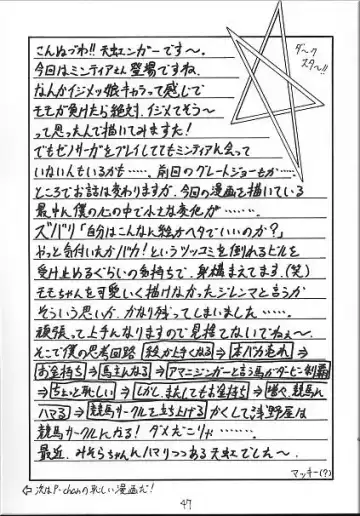 ダーク
スター!!
こんぬづわ!!天虹ンガーです〜。
今回はミンティアさん登場ですね。
なんかイジメッ娘キャラって感じで
モモが負けたら絶対、イジメてそう〜
って思ったんで描いてみますた!
でもゼノサーガをプレイしててもミンティアに会って
いない人もいるかも……。前回のグレートジョーもか……
ところでお話は変わりますが、今回の漫画を描いている
最中に僕の心の中で小さな変化が……。
ズバリ「自分はこんなに絵がヘタでいいのか?」
やっと気付いたかバカ!というツッコミを倒れるビルを
受け止めるぐらいの気持ちで、身構えてます。(笑)
モモちゃんを可愛いく描けなかったジレンマと言うか
そういう思いが、かなり残ってしまいました……。
頑張って上手くなりますので見捨てないでねぇ〜。
そこで僕の思考回路 絵が上手くなる⇒本バカ売れ⇒
お金持ち⇒馬主になる⇒アマニジンガーと言う馬がダービー制覇
⇒ちょっと恥しい⇒しかし、またしてもお金持ち⇒増々、競馬に
ハマる⇒競馬サークルを立ち上げる かくして浅野屋は
競馬サークルになる!ダメだこりゃ……。
最近、みそらちゃんにハマりつつある天虹でした〜。
マッキー(?)
⇦次はP-chanの恥しい漫画だ!
47